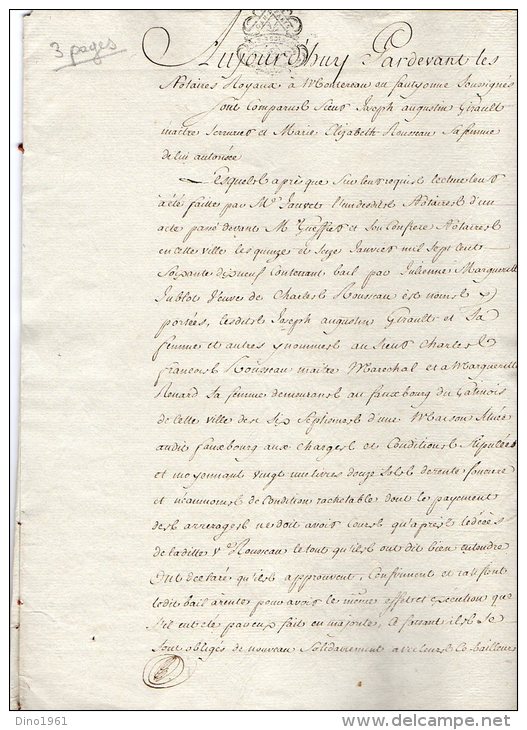 3 pages
Aujourd'huy Pardevant les
Notaires Royaux a Montereau en fautyonne soussignés
sont comparus sieur Joseph augustin Girault
maitre serrurier et Marie Elizabeth Rousseau sa femme
de lui autorisée
Lesquels après que sur leur requis lecture leur
a été faitte par Me Jauvet l'un desdits Notaires d'un
acte passé devant M Gueffier et son confrere Notaires
en cette ville les quinze et seize Janvier mil sept cent
soixante dixneuf contenant bail par Julienne Marguerite
Jublot Veuve de Charles Rousseau ès noms y
portées, lesdits Joseph augustin Girault et sa
femme et autres y nommés au sieur Charles
François Rousseau maitre Marechal et a Marguerite
Renard sa femme demeurans au fauxbourg du Gatinois
de cette ville des six septiemes d'une Maison située
audit fauxbourg aux charges et conditions stipulées
et moyennant vingt une livres douze sols de rente fonciere
et néanmoins de condition rachetable dont le payement
des arrerages ne doit avoir cours qu'après le décès
de laditte Ve Rousseau le tout qu'ils ont dit bien entendre
Ont declaré qu'ils approuvent, confirment et ratifient
ledit bail a rente pour avoir le même effet et execution que
s'il eut été par eux fait en majorité, Ce faisant ils se
sont obligés de nouveau solidairement avec leurs co-bailleurs
Dino1961
delcampe.net